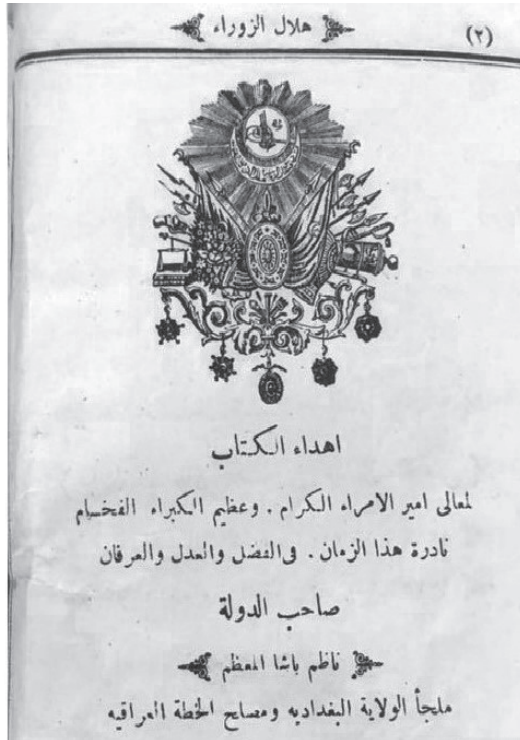 هلال الزوراء
(٢)
اهداء الكتاب
لمعالى امير الامراء الكرام . وعظيم الكبراء الفخام
نادرة هذا الزمان . فى الفضل والعدل والعرفان
صاحب الدولة
ناظم باشا المعظم
ملجأ الولاية البغداديه ومصلح الخطة العراقيه